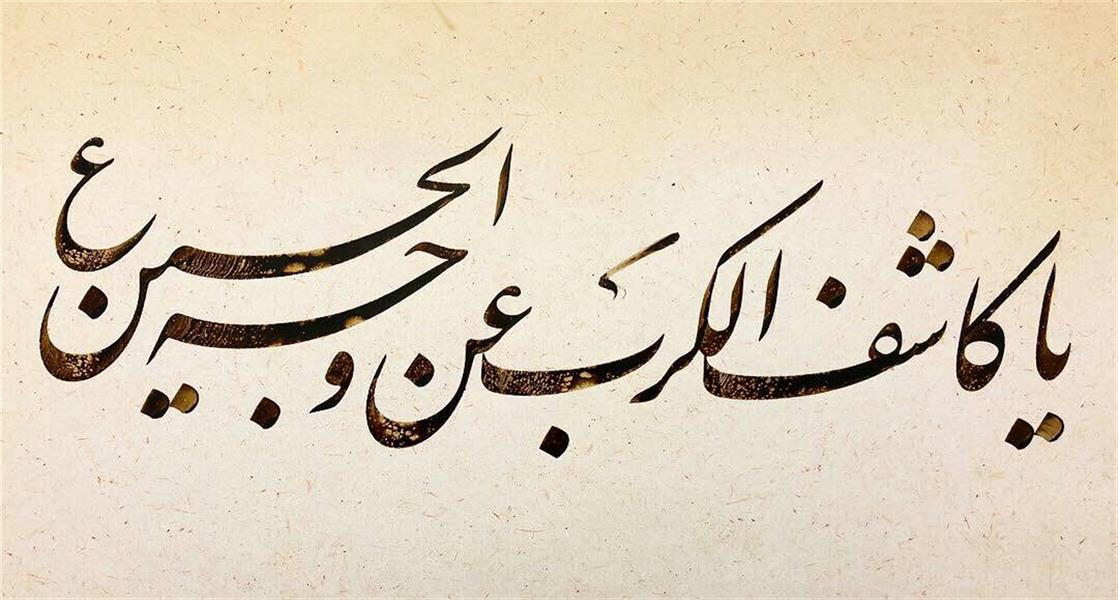 یا کاشف الکرب عن وجه الحسین ع